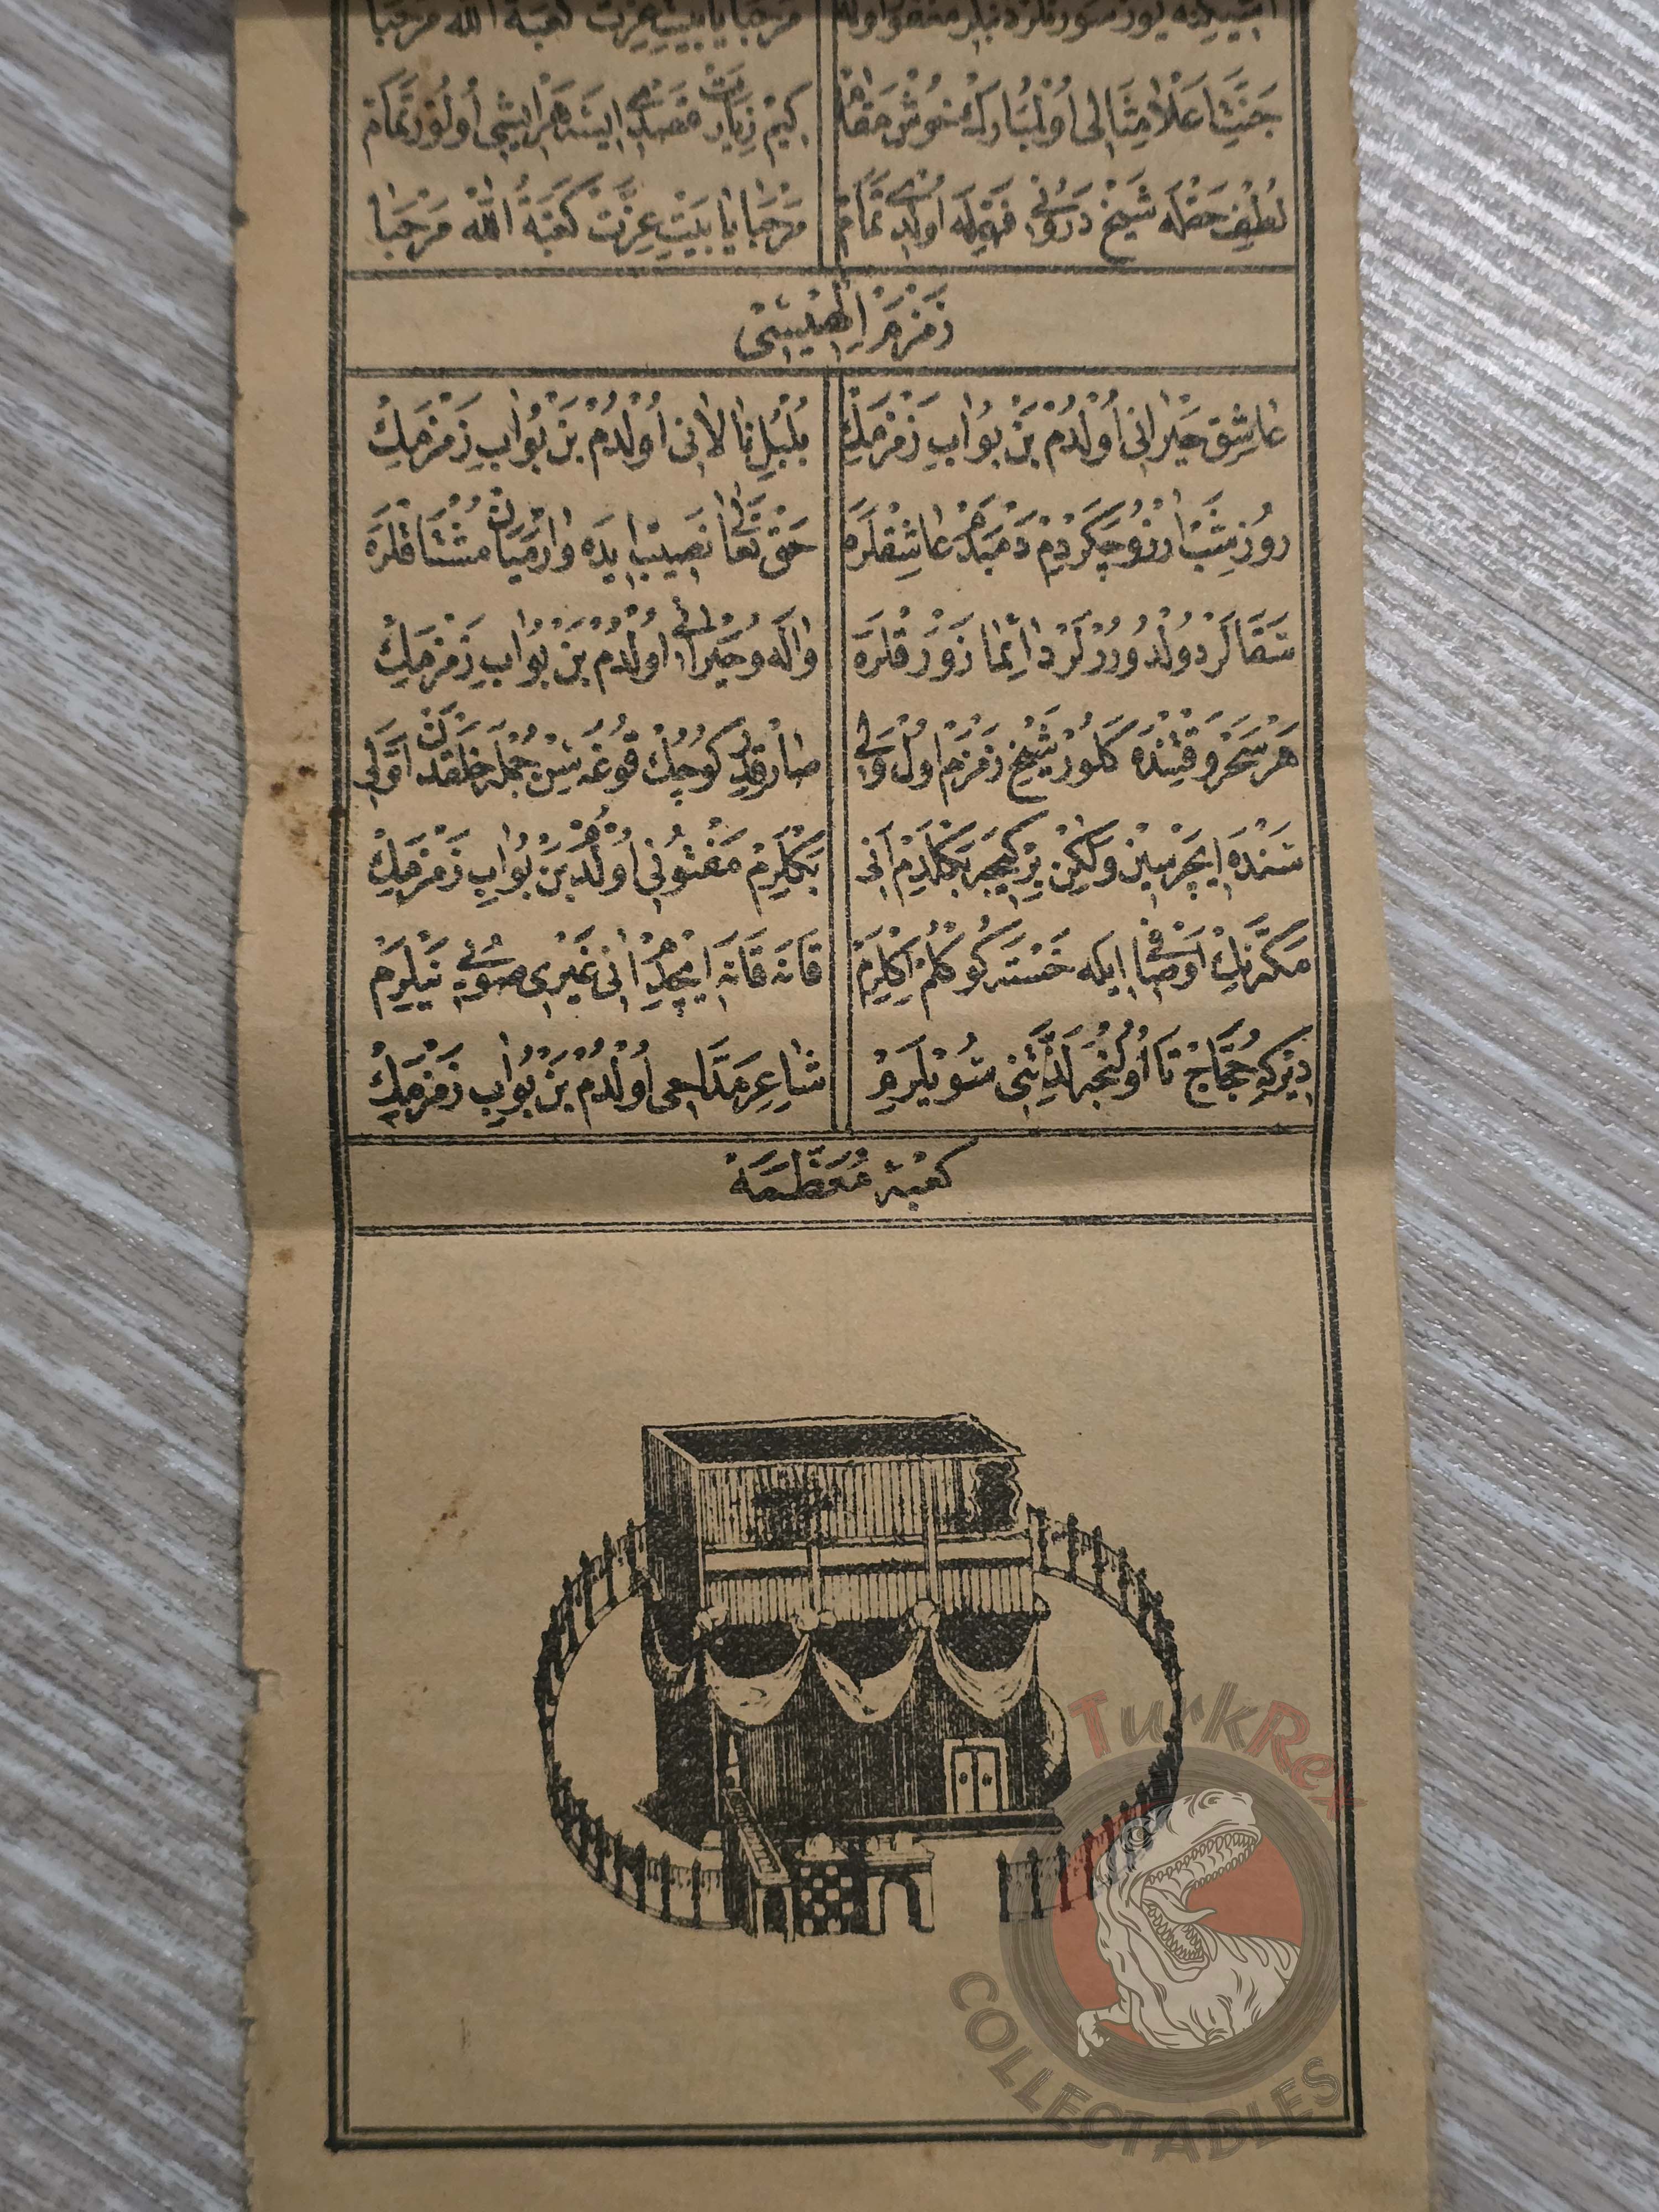 مَرْحَبَا يَا بَيْتِ عِزَّتْ كَعْبَةُ اللّٰه مَرْحَبَا
جَنَّتِ اَعْلَا مِثَالِى اُولْ مُبَارَكْ خُوشْ مَقَامْ كِيمْ زِيَارَتْ قَصْدِى ايتسَه هَرْ ايشِى اُولُورْ تَمَامْ
لُطْفِ حَقْلَه شَيْخْ اُولْدِى تَمَامْ مَرْحَبَا يَا بَيْتِ عِزَّتْ كَعْبَةُ اللّٰه مَرْحَبَا
زَمْزَمْ اِلٰهِيسِى
عَاشِقِ حَيْرَانِى اُولْدُمْ بَنْ بُو اٰبِ زَمْزَمِكْ بُلْبُلِ نَالَانِى اُولْدُمْ بَنْ بُو اٰبِ زَمْزَمِكْ
رُوزِ شَبْ اٰرْزُو چَكَرْدِمْ عَاشِقْلَرَه حَقْ تَعَالٰى نَصِيبْ ايدَه وَارْمَيَانْ مُشْتَاقْلَرَه
سَقَالَرْ دُولْدُورُرْلَرْ دَائِمَا زَوْرَقْلَرَه وَالِه وُ حَيْرَانِى اُولْدُمْ بَنْ بُو اٰبِ زَمْزَمِكْ
هَرْ سَحَرْ وَقْتِنْدَه كَلُورْ شَيْخِ زَمْزَمْ اُولْ وَلِى صَارْقِدِرْ كُوچُكْ قُوغَه سِينْ جُمْلَه خَلْقْدَنْ اَوَّلِى
سَنْدَه اِيچَرْسِينْ وَلٰكِنْ بِرْ كِيجَه بَكْلَدِمْ اَنِى بَكْلَرِمْ مَفْتُونِى اُولْدُمْ بَنْ بُو اٰبِ زَمْزَمِكْ
مَكَّه نِكْ اَوْصَافِى ايلَه خَسْتَه كُوكْلُمْ اَكْلَرِمْ قَانَه قَانَه ايچْدِمْ اَنِى غَيْرِى صُويِى نَيْلَرِمْ
دِيرْكِه حُجَّاجْ تَا اُولُنْجَه لَذَّتِنِى سُويْلَرَمْ شَاعِرِ مَدَّاحِى اُولْدُمْ بَنْ بُو اٰبِ زَمْزَمِكْ
كَعْبَۀ مُعَظَّمَه
TurkRex
COLLECTABLES